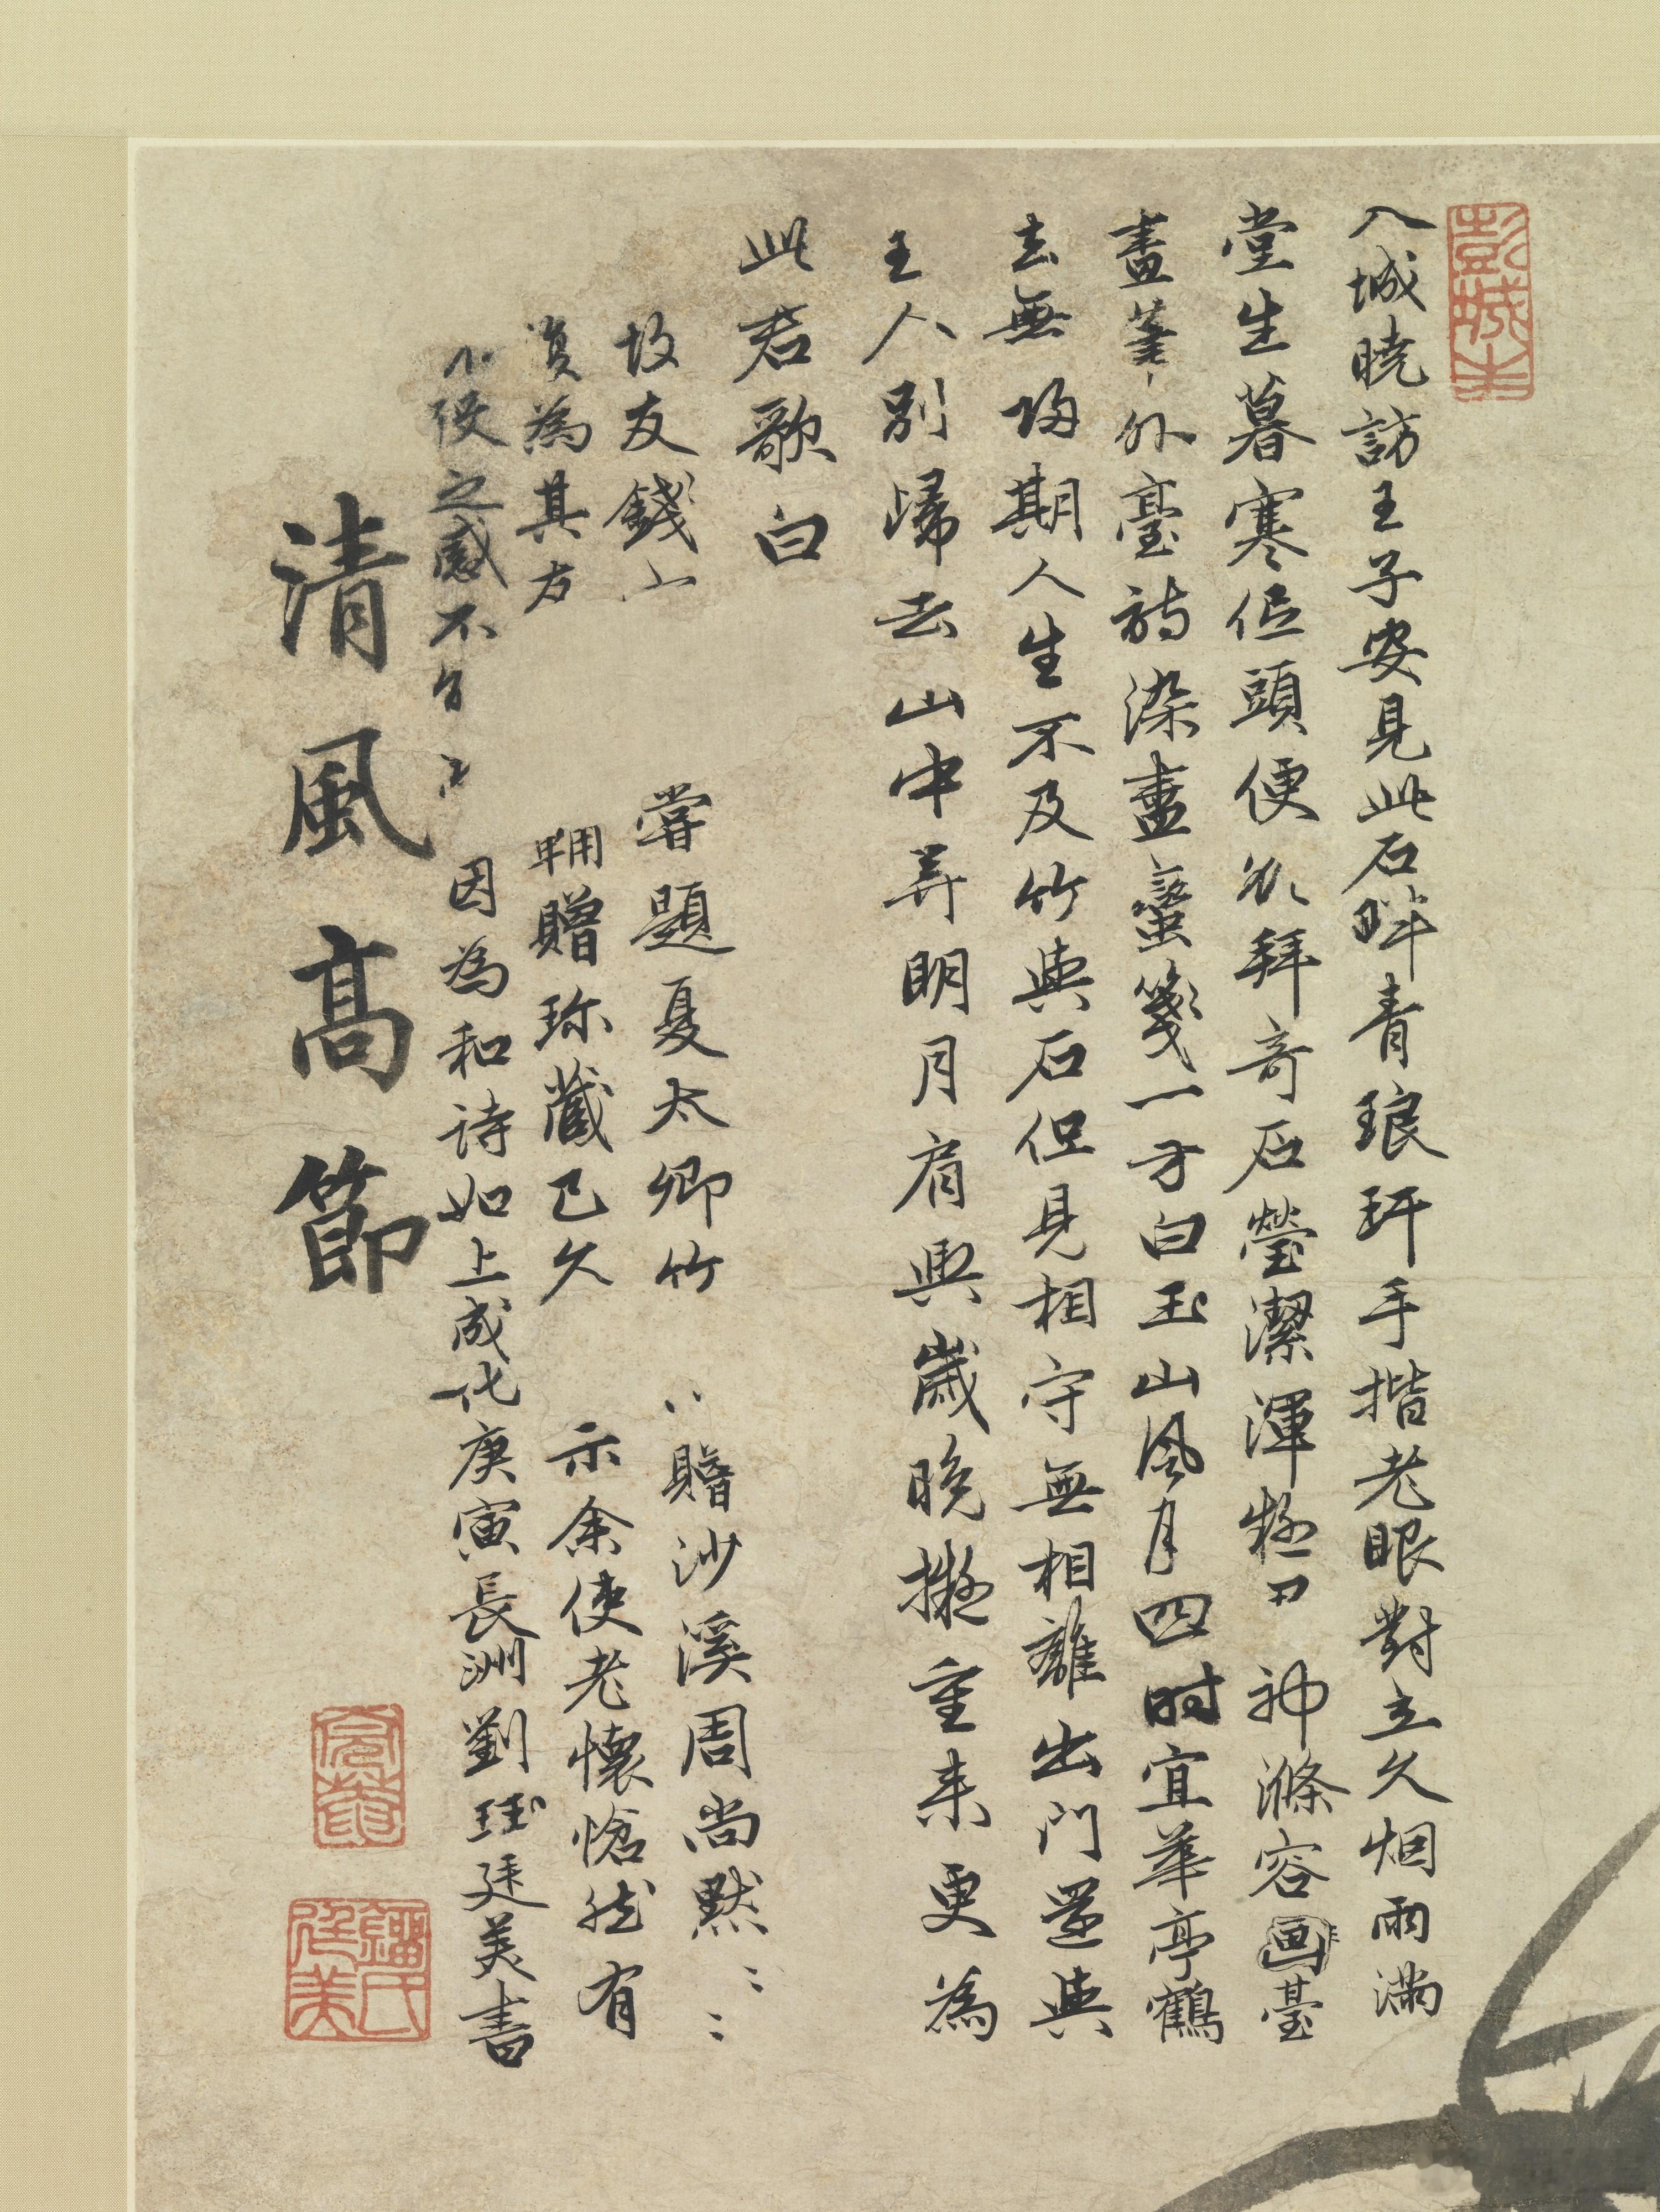 彭城朱
入城曉訪王子安見此石畔青琅玕手揩老眼對立久烟雨滿
堂生暮寒低頭便欲拜奇石瑩潔渾 神滌容畫臺
畫筆外臺詩染畫蠻箋一方白玉山風月四时宜華亭鶴
去無歸期人生不及竹與石但見相守無相離出門還與
主人別歸去山中弄明月肩輿歲晚擬重来更為
此君歌白
故友錢 嘗題夏太卿竹 贈沙溪周尚默
為其方 贈珎藏已久 示余使老懷愴然有
之感不 因為和诗如上成化庚寅長洲劉珏廷美書
清風高節